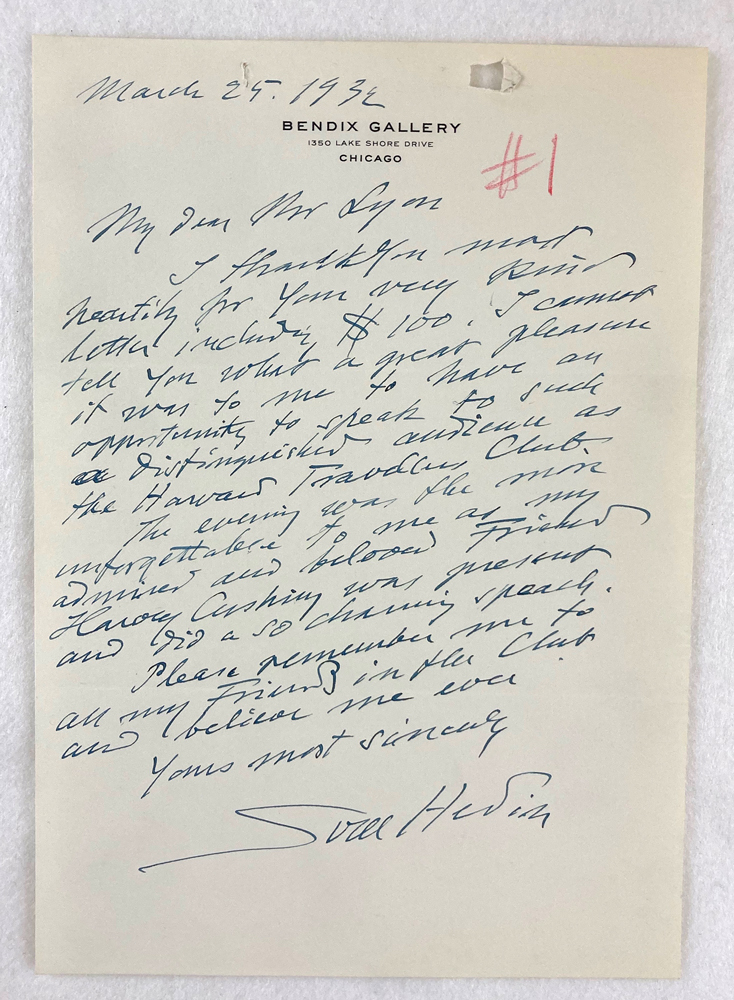 March 25. 1932
BENDIX GALLERY
1350 LAKE SHORE DRIVE
CHICAGO
#1
My dear Mr Lyon
I thank You most
heartily for Your very kind
letter including $ 100. I cannot
tell You what a great pleasure
it was to me to have an
opportunity to speak to such
a distinguished audience as
the Harvard Travellers Club.
The evening was the more
unforgettable to me as my
admired and beloved Friend
Harvey Cushing was present
and did a so charming speach.
Please remember me to
all my Friends in the Club
and believe me ever
Yours most sincerely
Sven Hedin